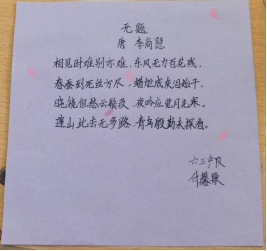 无题
唐 李商隐
相见时难别亦难，东风无力百花残。
春蚕到死丝方尽，蜡炬成灰泪始干。
晓镜但愁云鬓改，夜吟应觉月光寒。
蓬山此去无多路，青鸟殷勤为探看。
六三中队